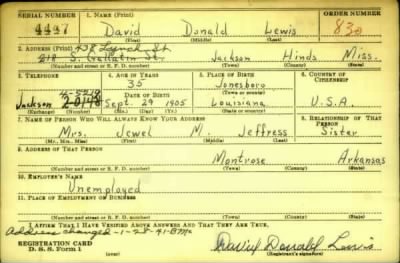 SERIAL NUMBER 1. NAME (Print) ORDER NUMBER
4447 David Donald Lewis 830
(First) (Middle) (Last)
2. ADDRESS (Print) 438 Lynch St
218 S. Gallatin St. Jackson Hinds Miss.
(Number and street or R. F. D. number) (Town) (County) (State)
3. TELEPHONE 4. AGE IN YEARS 5. PLACE OF BIRTH 6. COUNTRY OF CITIZENSHIP
35 Jonesboro
DATE OF BIRTH (Town or county)
Jackson 2-0148 Sept. 29 1905 Louisiana U.S.A.
(Exchange) (Number) (Mo.) (Day) (Yr.) (State or country)
7. NAME OF PERSON WHO WILL ALWAYS KNOW YOUR ADDRESS 8. RELATIONSHIP OF THAT PERSON
Mrs. Jewel M. Jeffress Sister
(Mr., Mrs., Miss) (First) (Middle) (Last)
9. ADDRESS OF THAT PERSON
Montrose Arkansas
(Number and street or R. F. D. number) (Town) (County) (State)
10. EMPLOYER'S NAME
Unemployed
11. PLACE OF EMPLOYMENT OR BUSINESS
(Number and street or R. F. D. number) (Town) (County) (State)
I AFFIRM THAT I HAVE VERIFIED ABOVE ANSWERS AND THAT THEY ARE TRUE.
Address changed -1-28-41-
REGISTRATION CARD David Donald Lewis
D. S. S. Form 1 (over) (Registrant's signature)